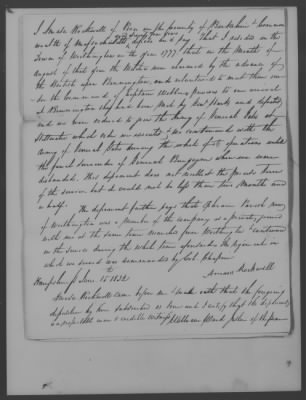 I Amasa Rockwell of Peru in the County of Berkshire & Common
wealth of Massachusetts aged years testify & say that I resided in the
Town of Worthington in the year 1777 that in the Month of
August of that year the Militia were alarmed by the advance of
the British upon Bennington and volunteered to meet them un-
der the command of Captain Webber previous to our arrival
at Bennington they had been met by New Stark and defeated
and we were ordered to join the Army of General Gates at
Stillwater which order we executed & continued with the
Army of General Gates during the whole of its operations until
the final surrender of General Burgoyne when we were
disbanded. This deponent does not recollect the precise term
of the service but it could not be less than two Months and
a half.
The deponent further says that Abner Parish now
of Worthington was a member of the company as a private, joined
with me at the same time marched from Worthington & continued
in the service during the whole time aforesaid. The regiment in
which we served was commanded by Col. Chapin
Amasa Rockwell
Hampshire ss June 15 1832
Amasa Rockwell came before me & made oath that the foregoing
deposition by him subscribed is true and I certify that the deponent
is a respectable man & credible witness William Ward Justice of the peace